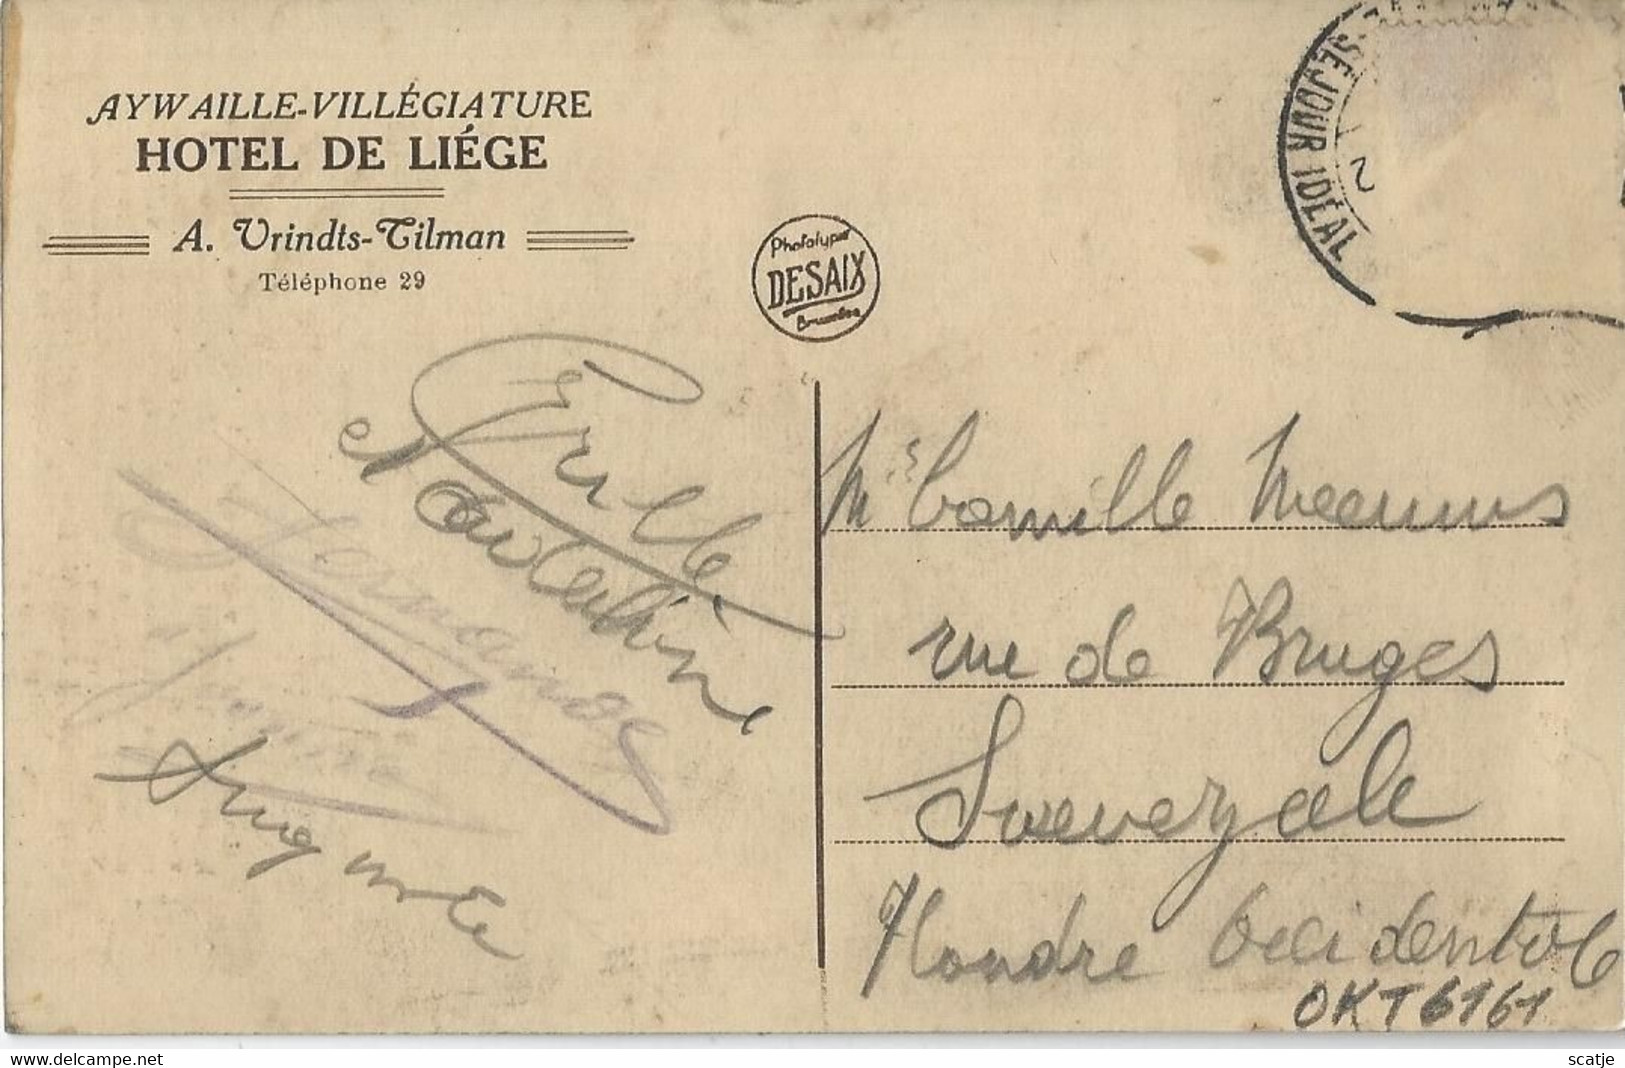 AYWAILLE-VILLÉGIATURE
HOTEL DE LIÉGE
A. Vrindts-Tilman
Téléphone 29
Phototypie
DESAIX
Bruxelles
SÉJOUR IDÉAL
2
et
Germaine
Auguste
Mr Camille
rue de Bruges
Swevezele
Flandre Occidentale
OKT6161
delcampe.net
scatje